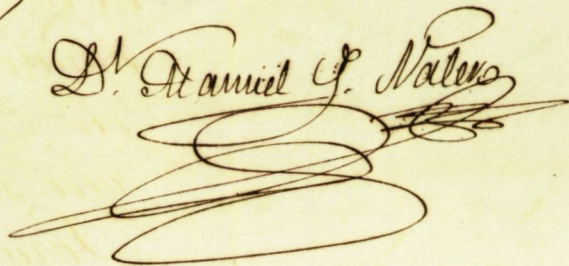 Dr. Manuel J. Nater